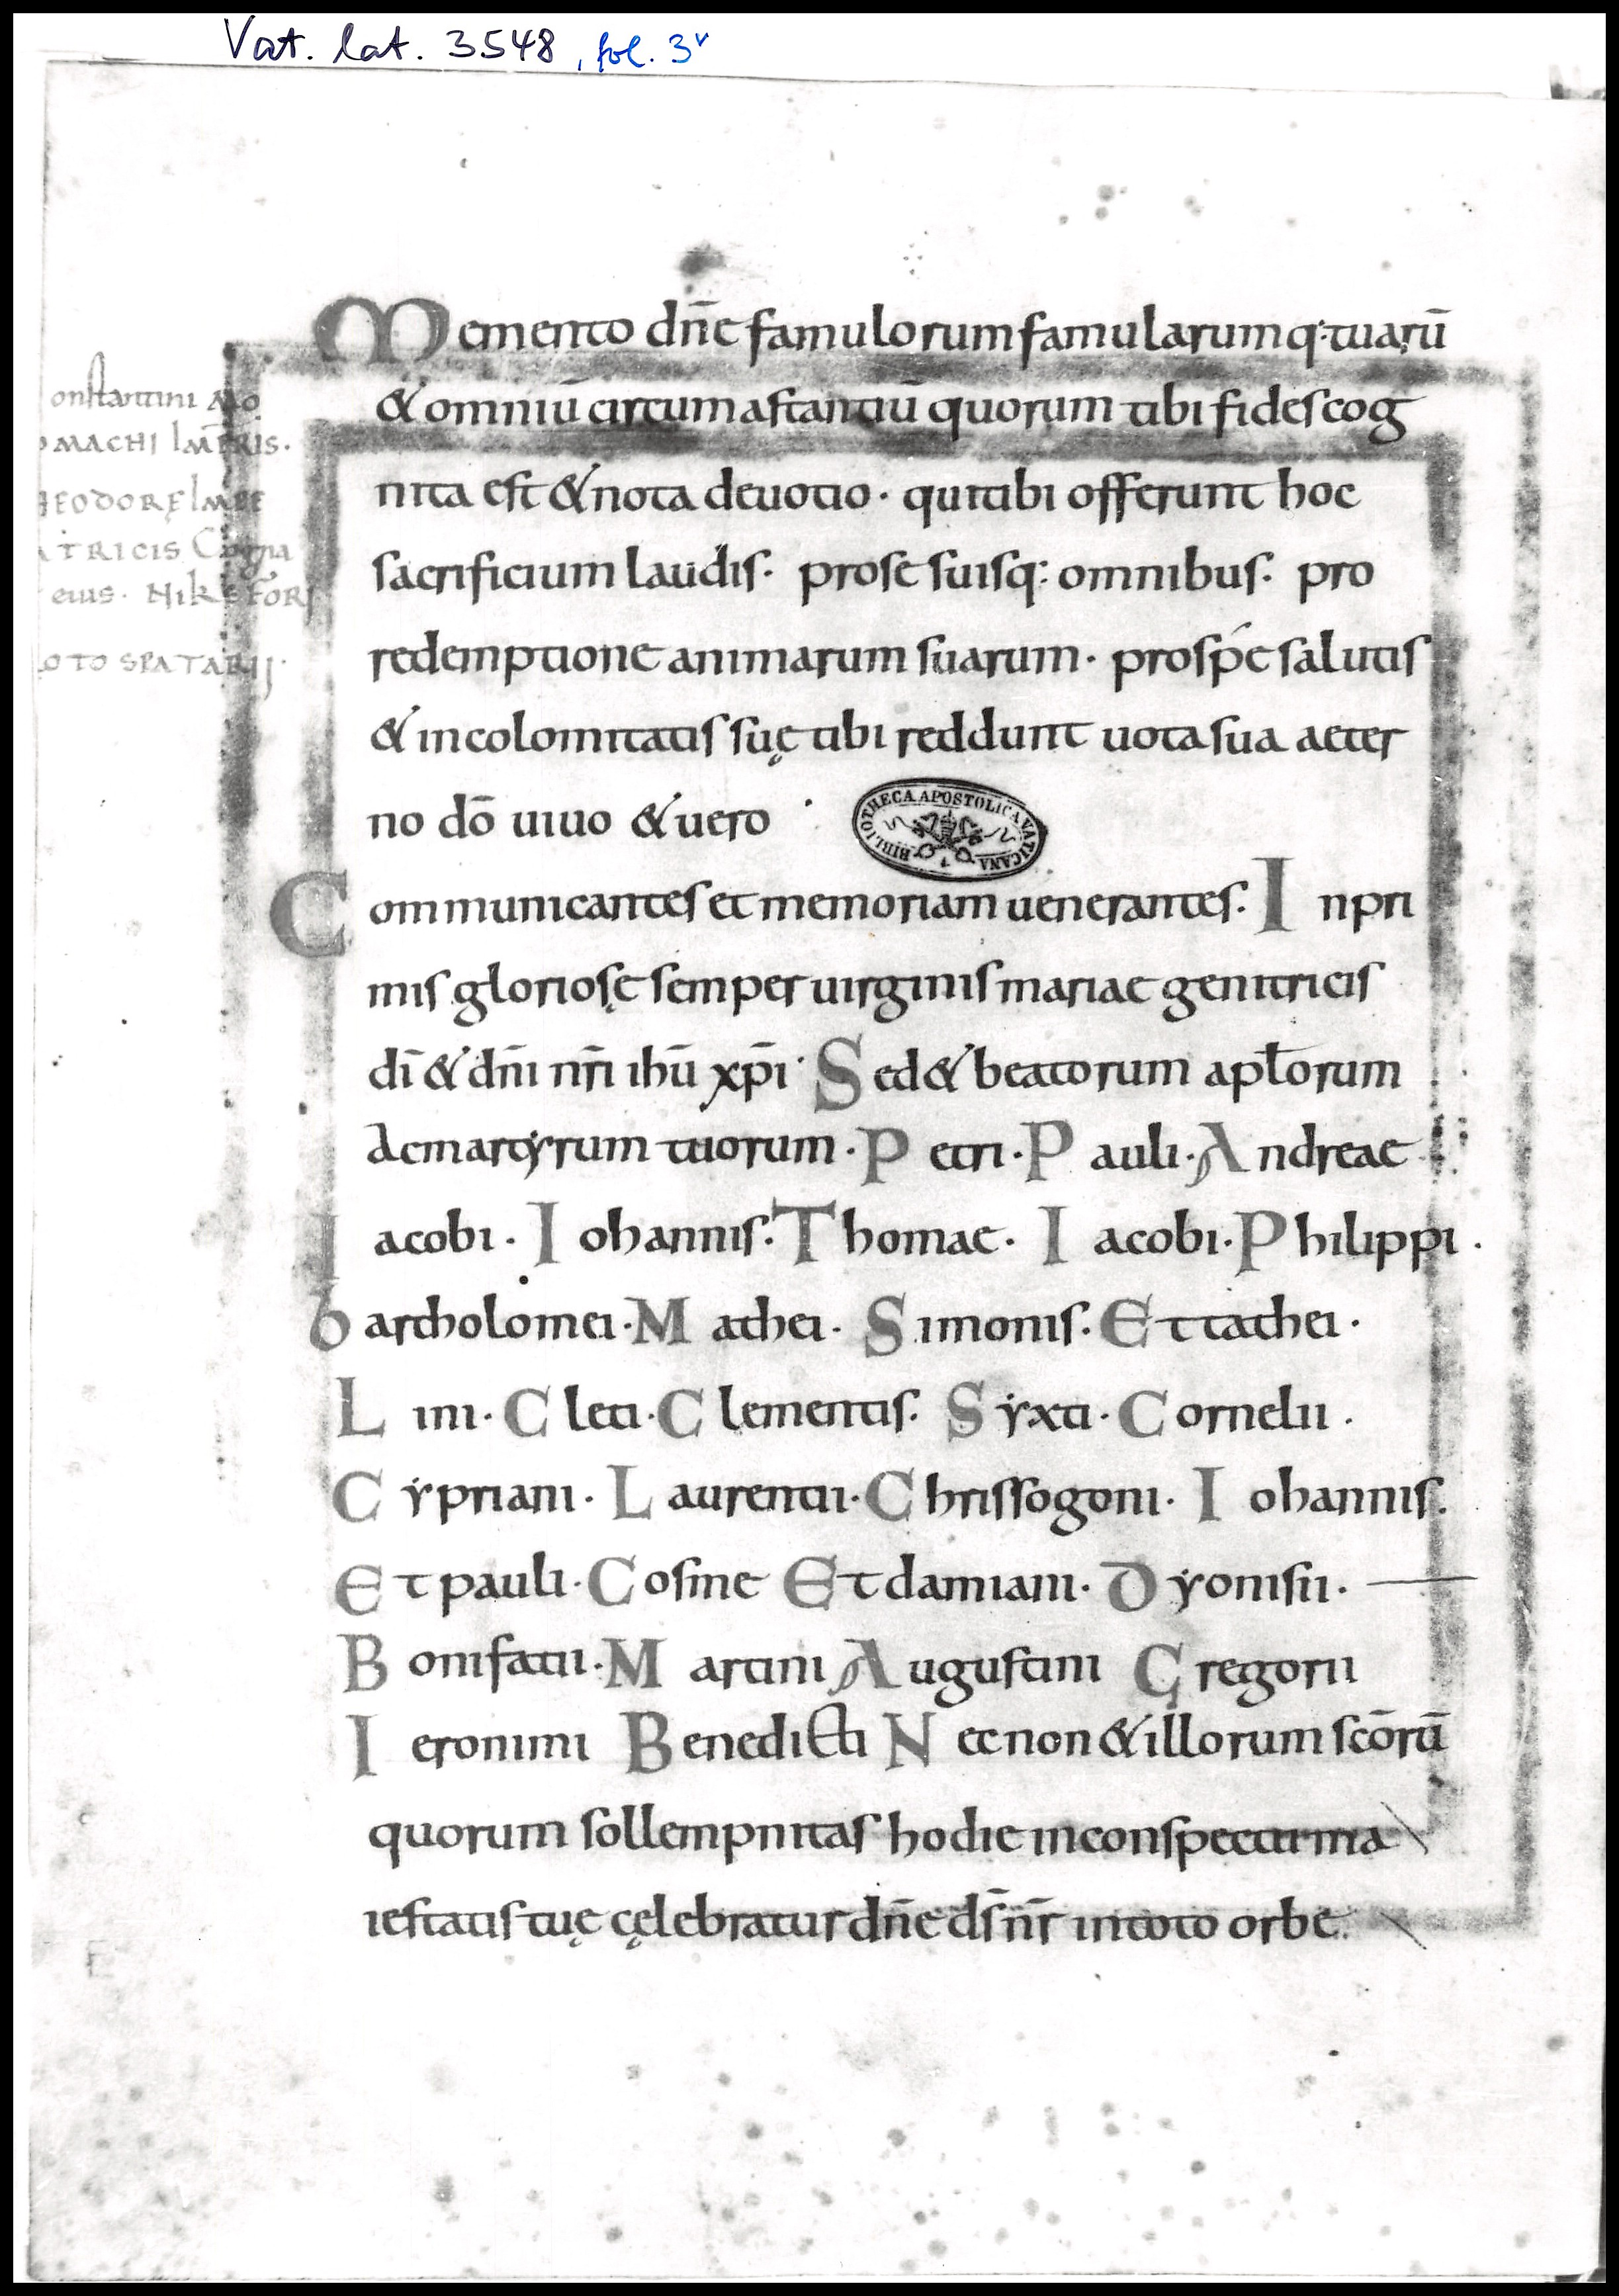 Vat. lat. 3548, fol. 3v
Memento dn̄e famulorum famularumq· tuarū
& omniū circumastantiū quorum tibi fides cog
nita est & nota deuotio· qui tibi offerunt hoc
sacrificium laudis· pro se suisq: omnibus· pro
redemptione animarum suarum· pro spe salutis
& incolomitatis suę tibi reddunt uota sua aeter
no dō uiuo & uero ·
BIBLIOTHECA APOSTOLICA VATICANA
Communicantes et memoriam uenerantes· Inpri
mis gloriosę semper uirginis mariae genitricis
dī & dn̄i nr̄i ihū xp̄i· Sed & beatorum apl̄orum
Ac martyrum tuorum· Petri· Pauli· Andreae
Iacobi· Iohannis· Thomae· Iacobi· Philippi·
bartholomei· Mathei· Simonis· Et tathei·
Lini· Cleti· Clementis· Syxti· Cornelii·
Cypriani· Laurentii· Chrissogoni· Iohannis·
Et pauli· Cosme Et damiani· Dyonisii·
Bonifatii· Martini Augustini Gregorii
Ieronimi Benedicti Necnon & illorum scōrū
quorum sollempnitas hodie in conspectu ma
iestatis tuę cęlebratur dn̄e ds̄ nr̄ in toto orbe·
onstantini Mo
omachi Imp̄ris·
heodorę Impe
atricis
eius· Nikefori
oto spatarij·